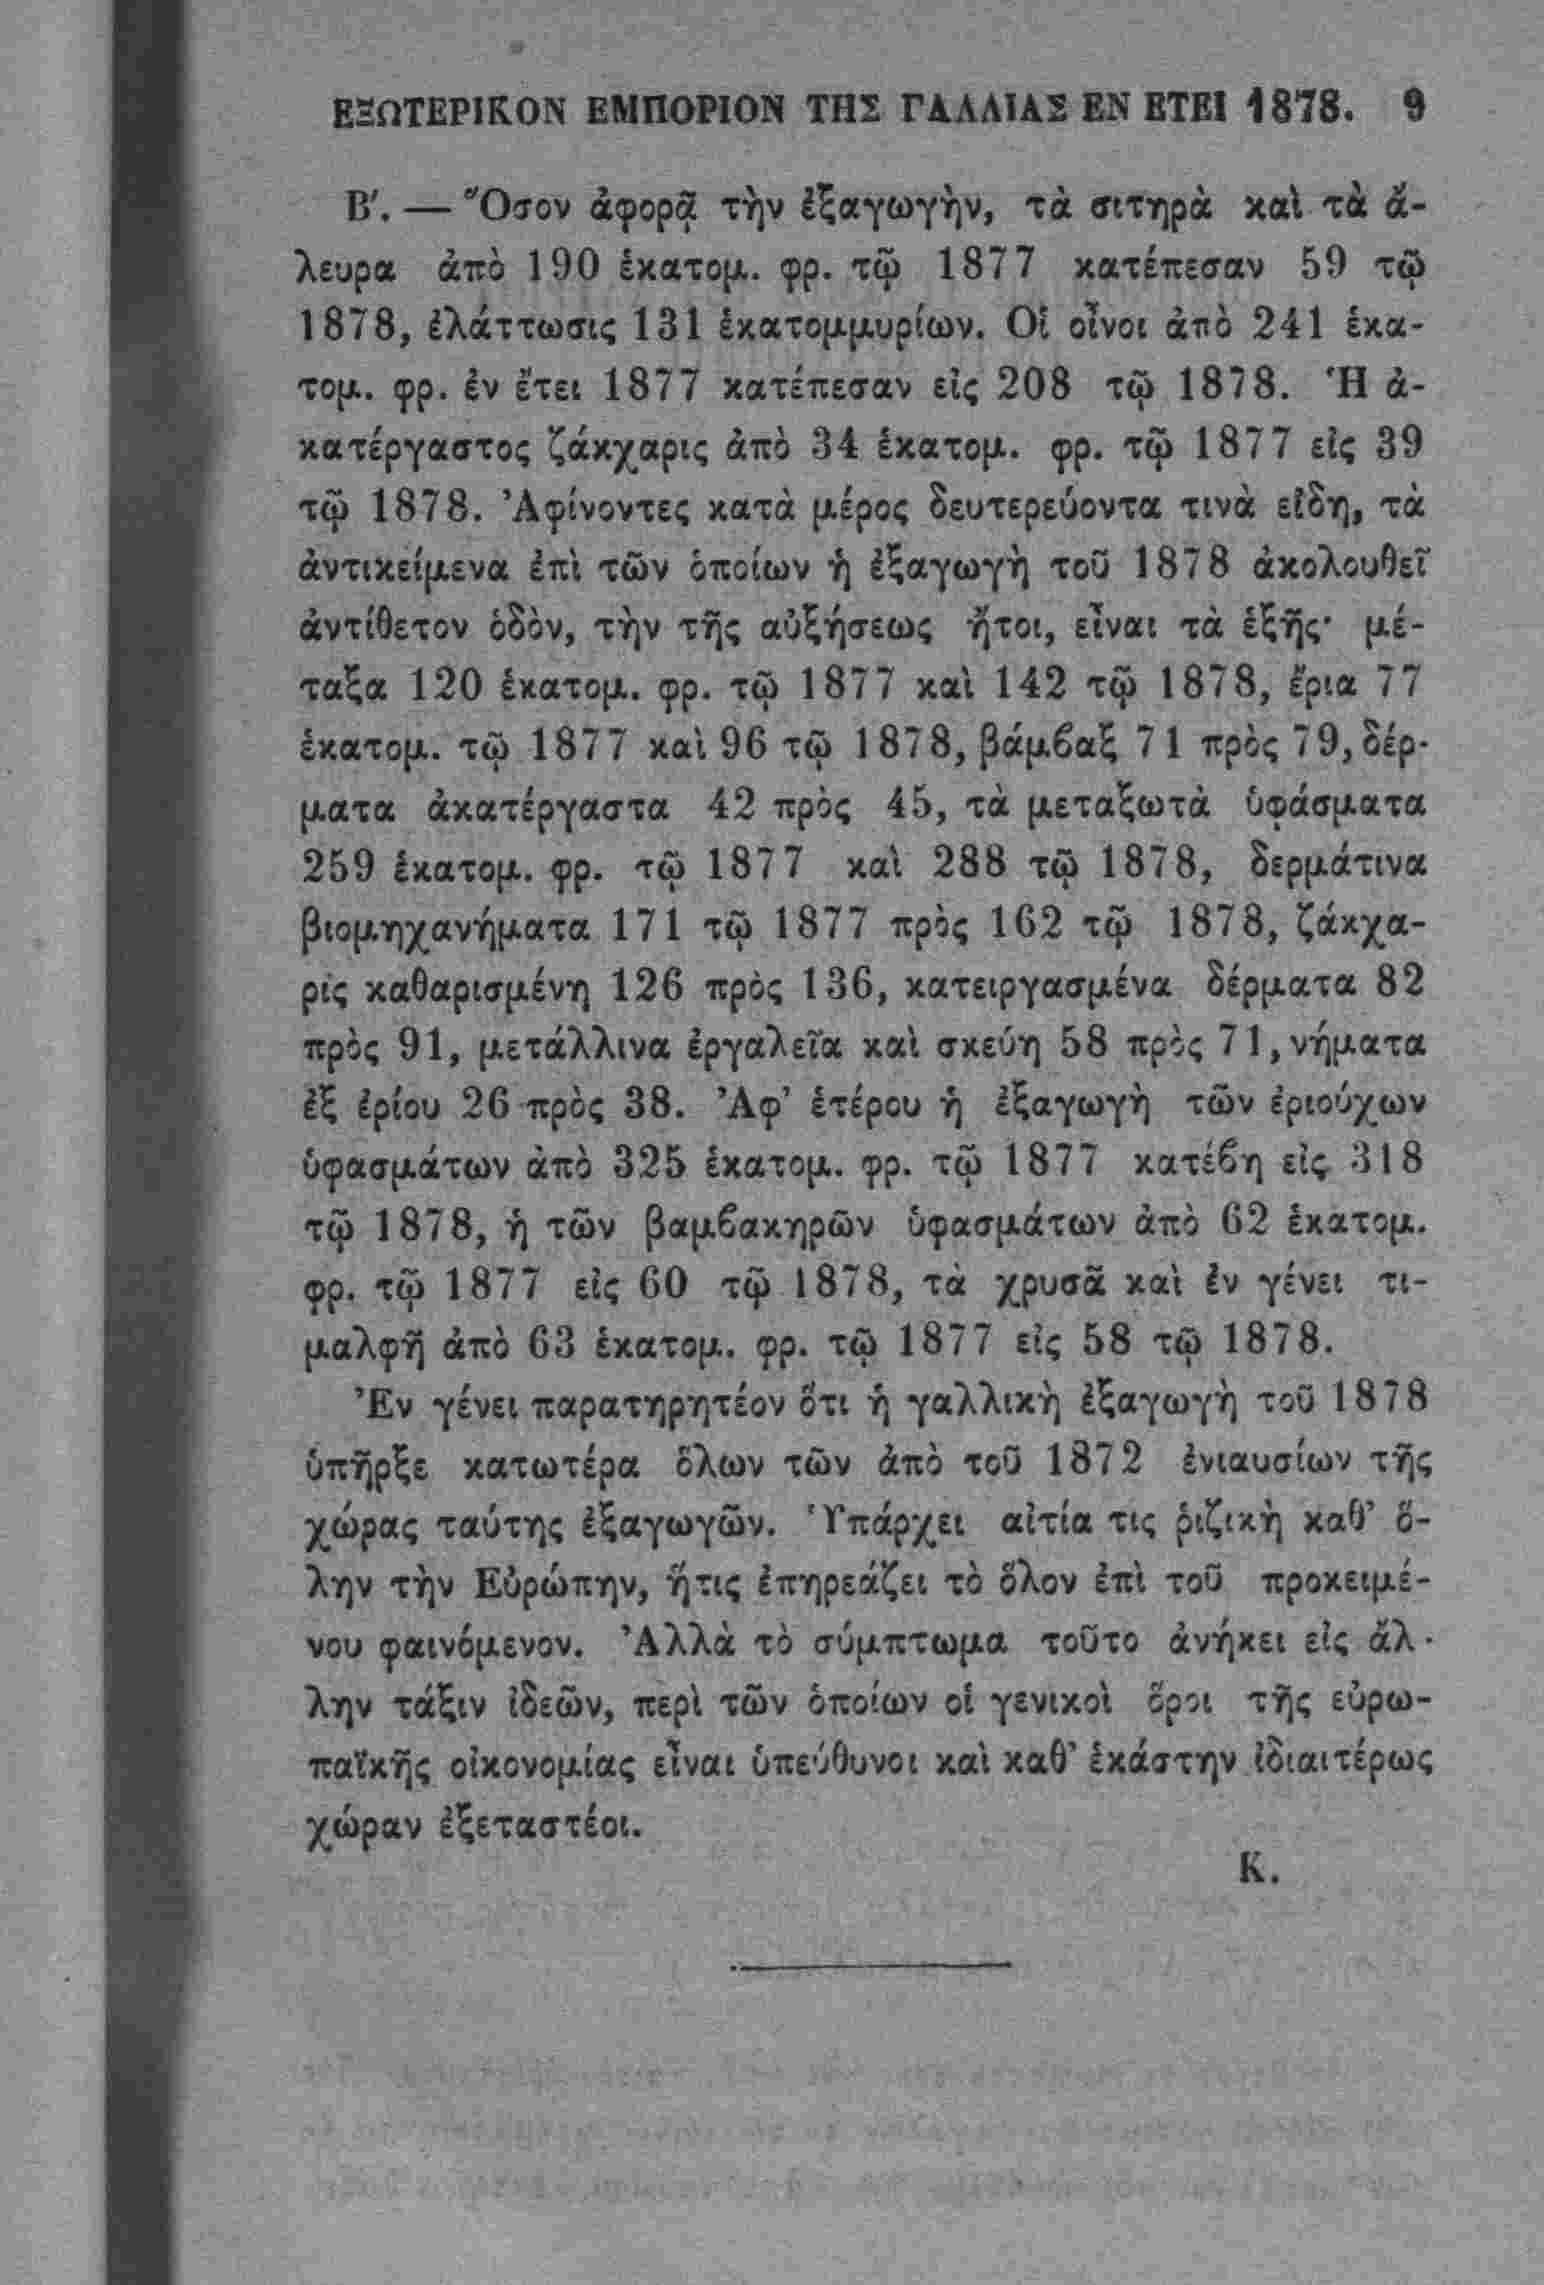 ΕΞΩΤΕΡΙΚΟΝ ΕΜΠΟΡΙΟΝ ΤΗΣ ΓΑΛΛΙΑΣ ΕΝ ΕΤΕΙ 1878. 9
Β′. — Ὅσον ἀφορᾷ τὴν ἐξαγωγὴν, τὰ σιτηρὰ καὶ τὰ ἄ-
λευρα ἀπὸ 190 ἑκατομ. φρ. τῷ 1877 κατέπεσαν 59 τῷ
1878, ἐλάττωσις 131 ἑκατομμυρίων. Οἱ οἶνοι ἀπὸ 241 ἑκα-
τομ. φρ. ἐν ἔτει 1877 κατέπεσαν εἰς 208 τῷ 1878. Ἡ ἀ-
κατέργαστος ζάκχαρις ἀπὸ 34 ἑκατομ. φρ. τῷ 1877 εἰς 39
τῷ 1878. Ἀφίνοντες κατὰ μέρος δευτερεύοντα τινὰ εἴδη, τὰ
ἀντικείμενα ἐπὶ τῶν ὁποίων ἡ ἐξαγωγὴ τοῦ 1878 ἀκολουθεῖ
ἀντίθετον ὁδὸν, τὴν τῆς αὐξήσεως ἤτοι, εἶναι τὰ ἑξῆς· μέ-
ταξα 120 ἑκατομ. φρ. τῷ 1877 καὶ 142 τῷ 1878, ἔρια 77
ἑκατομ. τῷ 1877 καὶ 96 τῷ 1878, βάμϐαξ 71 πρὸς 79, δέρ-
ματα ἀκατέργαστα 42 πρὸς 45, τὰ μεταξωτὰ ὑφάσματα
259 ἑκατομ. φρ. τῷ 1877 καὶ 288 τῷ 1878, δερμάτινα
βιομηχανήματα 171 τῷ 1877 πρὸς 162 τῷ 1878, ζάκχα-
ρις καθαρισμένη 126 πρὸς 136, κατειργασμένα δέρματα 82
πρὸς 91, μετάλλινα ἐργαλεῖα καὶ σκεύη 58 πρὸς 71, νήματα
ἐξ ἐρίου 26 πρὸς 38. Ἀφ’ ἑτέρου ἡ ἐξαγωγὴ τῶν ἐριούχων
ὑφασμάτων ἀπὸ 325 ἑκατομ. φρ. τῷ 1877 κατέϐη εἰς 318
τῷ 1878, ἡ τῶν βαμϐακηρῶν ὑφασμάτων ἀπὸ 62 ἑκατομ.
φρ. τῷ 1877 εἰς 60 τῷ 1878, τὰ χρυσᾶ καὶ ἐν γένει τι-
μαλφῆ ἀπὸ 63 ἑκατομ. φρ. τῷ 1877 εἰς 58 τῷ 1878.
Ἐν γένει παρατηρητέον ὅτι ἡ γαλλικὴ ἐξαγωγὴ τοῦ 1878
ὑπῆρξε κατωτέρα ὅλων τῶν ἀπὸ τοῦ 1872 ἐνιαυσίων τῆς
χώρας ταύτης ἐξαγωγῶν. Ὑπάρχει αἰτία τις ῥιζικὴ καθ’ ὅ-
λην τὴν Εὐρώπην, ἥτις ἐπηρεάζει τὸ ὅλον ἐπὶ τοῦ προκειμέ-
νου φαινόμενον. Ἀλλὰ τὸ σύμπτωμα τοῦτο ἀνήκει εἰς ἄλ-
λην τάξιν ἰδεῶν, περὶ τῶν ὁποίων οἱ γενικοὶ ὅροι τῆς εὐρω-
παϊκῆς οἰκονομίας εἶναι ὑπεύθυνοι καὶ καθ’ ἑκάστην ἰδιαιτέρως
χώραν ἐξεταστέοι.
Κ.